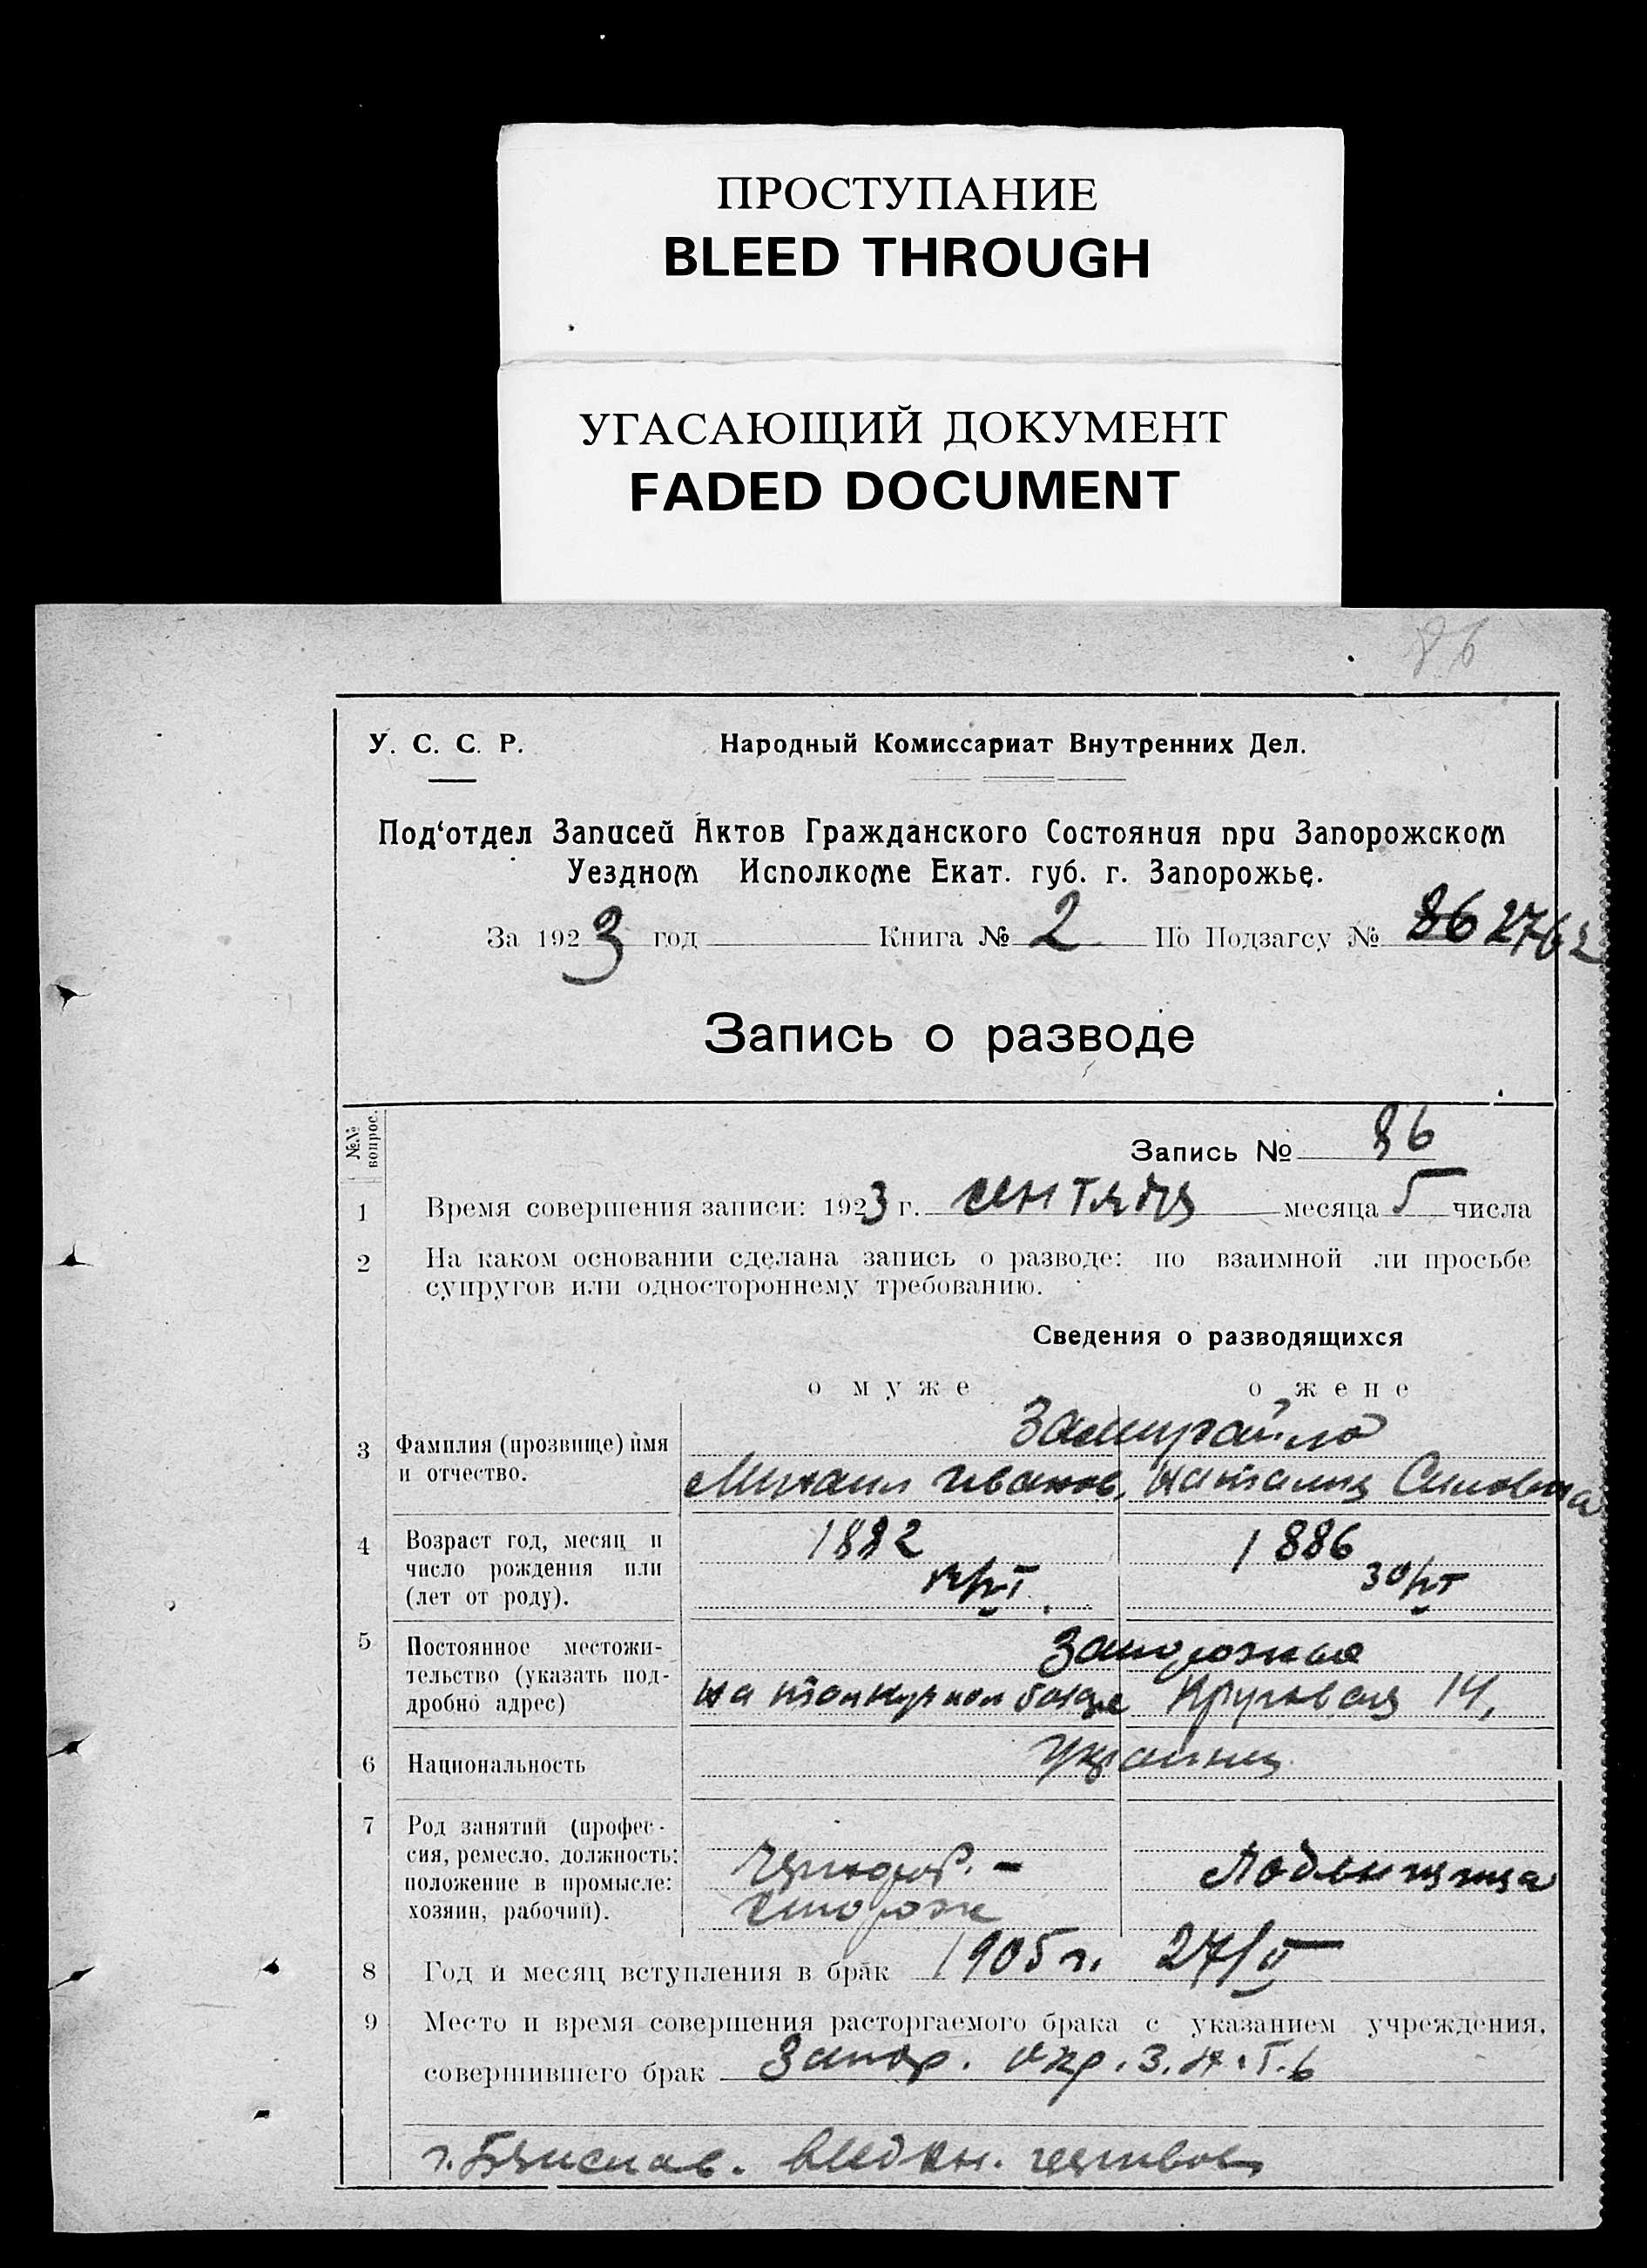 ПРОСТУПАНИЕ
BLEED THROUGH
УГАСАЮЩИЙ ДОКУМЕНТ
FADED DOCUMENT
86
У. С. С. Р. Народный Комиссариат Внутренних Дел.
Под‘отдел Записей Актов Гражданского Состояния при Запорожском
Уездном Исполкоме Екат. губ. г. Запорожье.
За 1923 год Книга № 2 По Подзагсу № 86 2762
Запись о разводе
№№ вопрос.
Запись № 86
1 Время совершения записи: 1923 г. сентября месяца 5 числа
2 На каком основании сделана запись о разводе: по взаимной ли просьбе
супругов или одностороннему требованию.
Сведения о разводящихся
о муже о жене
Замирайло
3 Фамилия (прозвище) имя
и отчество.
Михаил Иванов. Наталия
4 Возраст год, месяц и
число рождения или
(лет от роду).
1882 1886
5 Постоянное местожи-
тельство (указать под-
дробно адрес)
Запорожье
на Круговая 14,
6 Национальность Украинц
7 Род занятий (профес-
сия, ремесло, должность:
положение в промысле:
хозяин, рабочий).
сторож
8 Год и месяц вступления в брак 1905 г. 27/II
9 Место и время совершения расторгаемого брака с указанием учреждения,
совершившего брак Запор. окр.